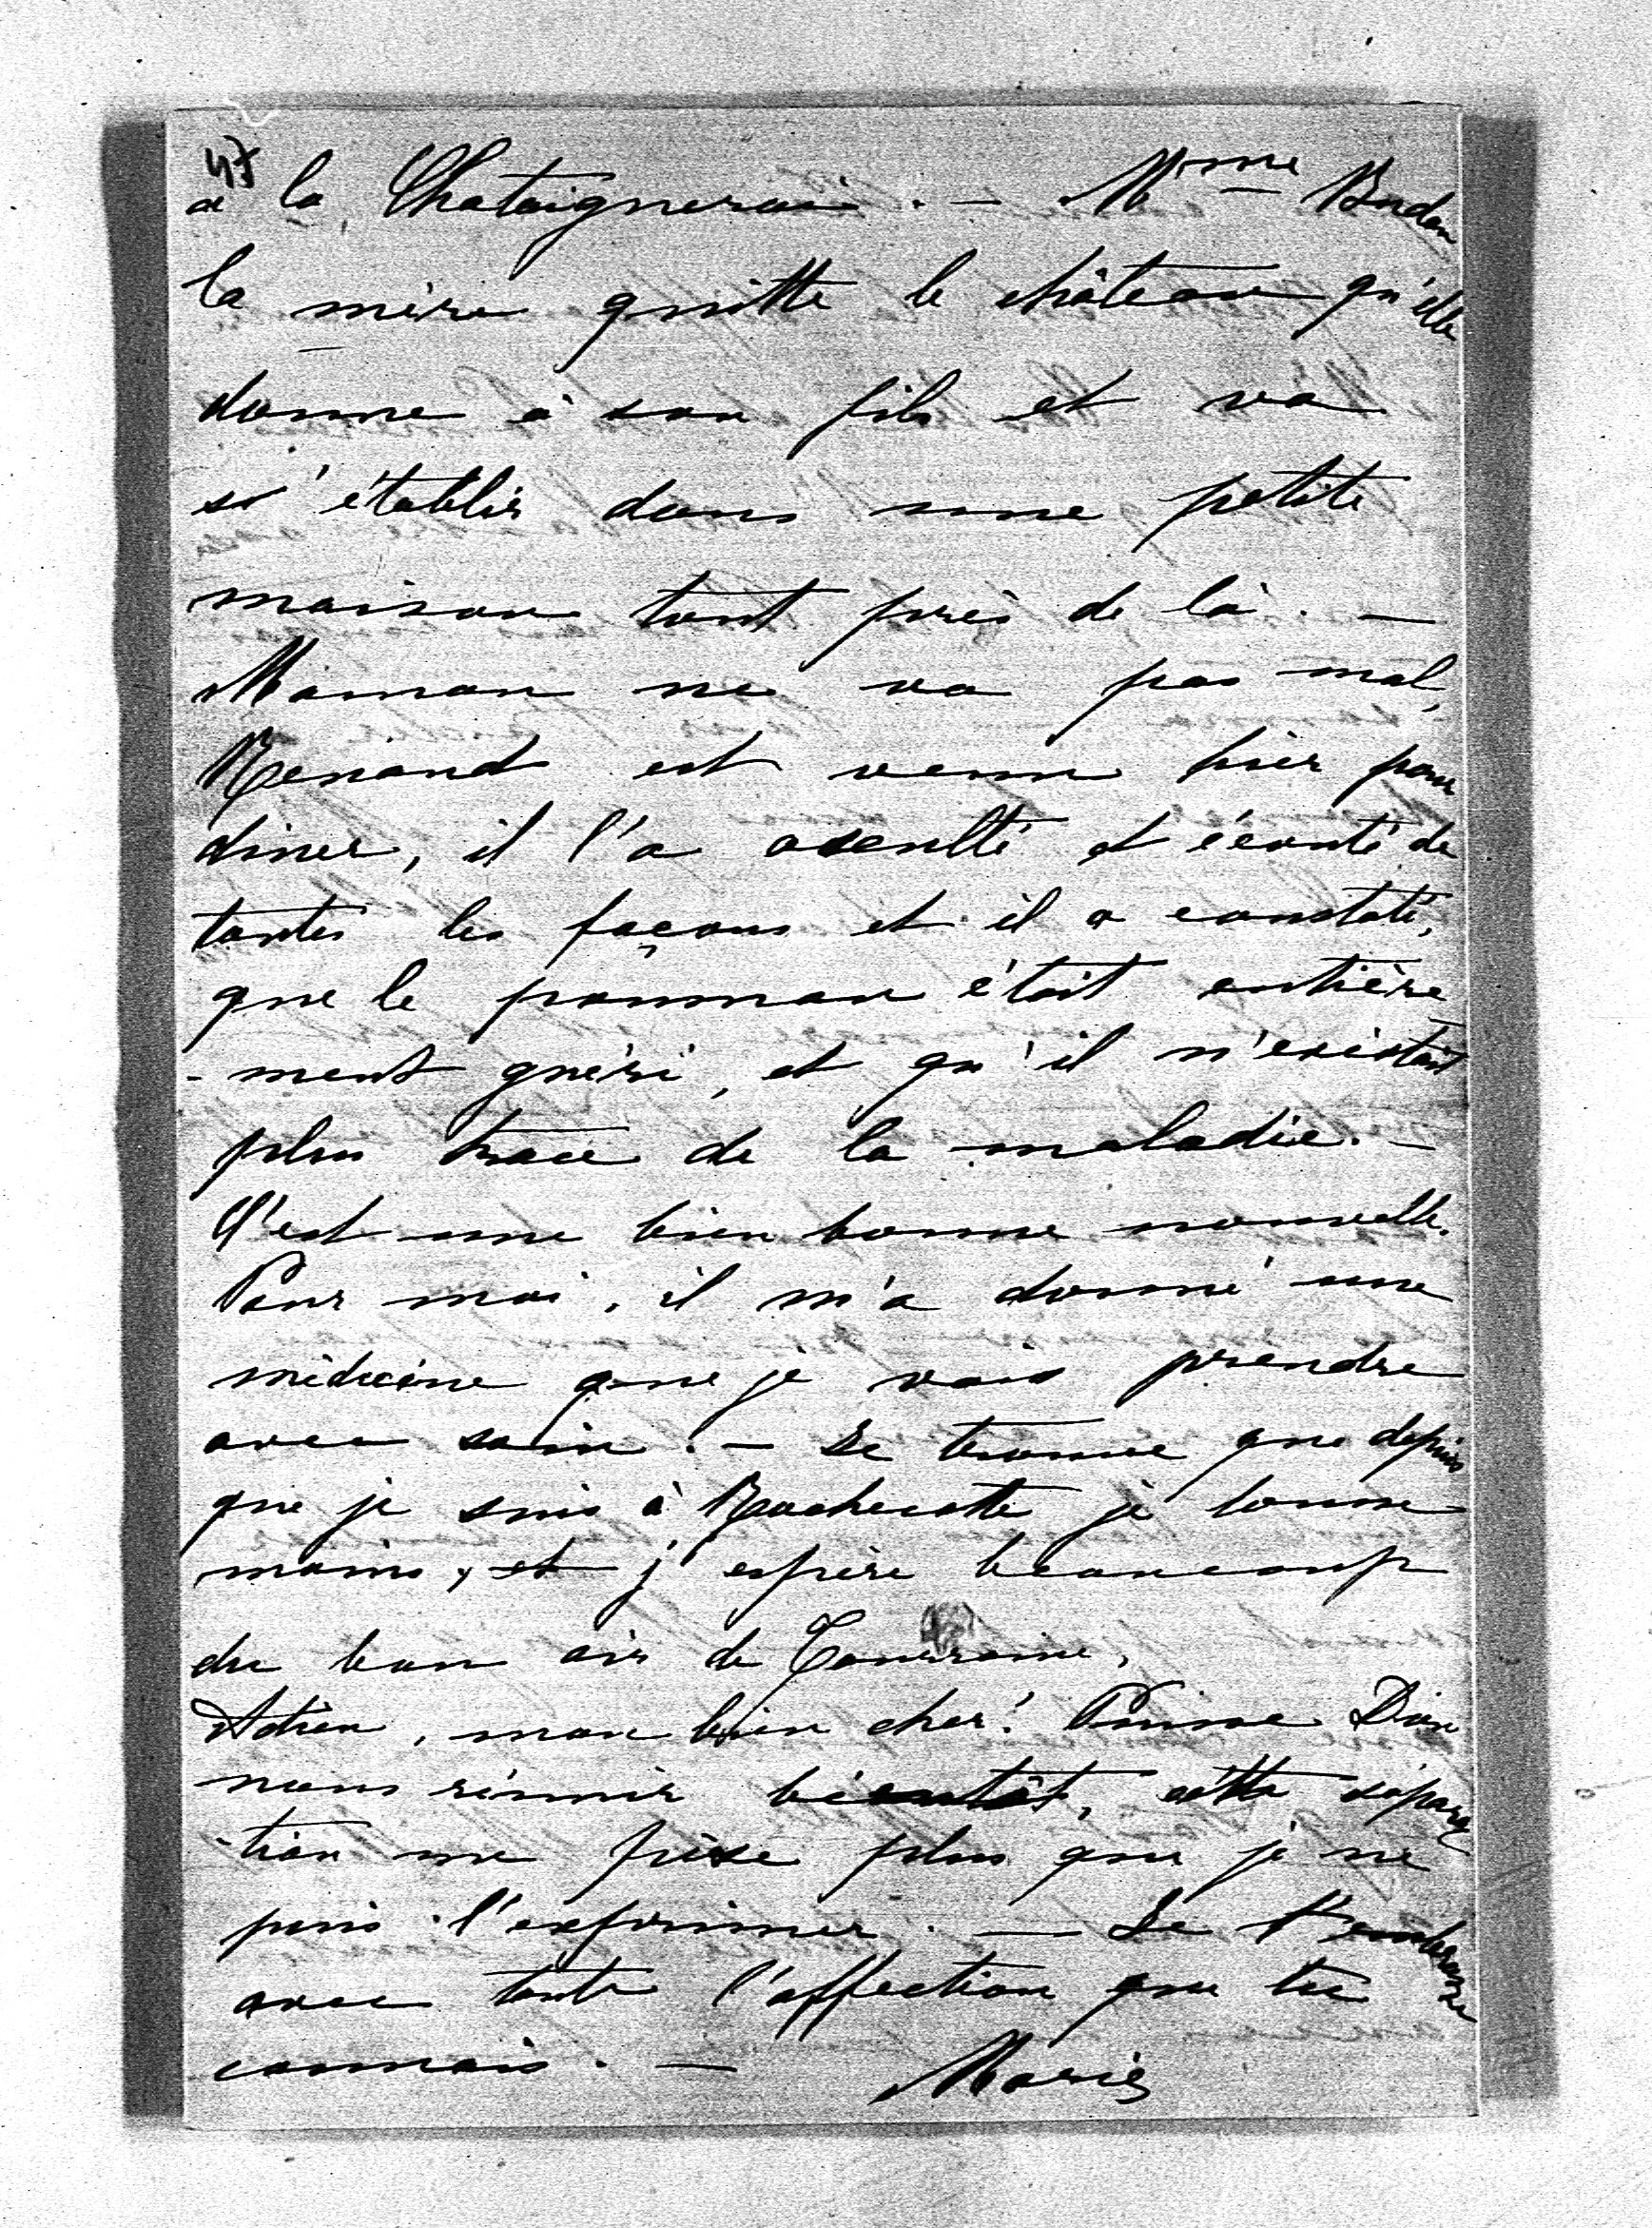 47
à la Chataigneraie. — Mme Budan
la mère quitte le château qu'elle
donne à son fils et va
s'établir dans une petite
maison tout près de là. —
Maman ne va pas mal,
est venu hier pour
diner, il l'a asculté et écouté de
toutes les façons et il a constaté,
que le poumon était entière
-ment guéri, et qu'il n'existait
plus trace de la maladie. —
C'est une bien bonne nouvelle.
Pour moi, il m'a donné une
médecine que je vais prendre
avec soin. — Je trouve que depuis
que je suis à Rochecotte je tousse
moins, et j'espère beaucoup
du bon air de Touraine.
Adieu, mon bien cher! Puisse Dieu
nous réunir bientôt, cette sépara
-tion me pèse plus que je ne
puis l'exprimer. — Je t'embrasse
avec toute l'affection que tu
connais. — Marie